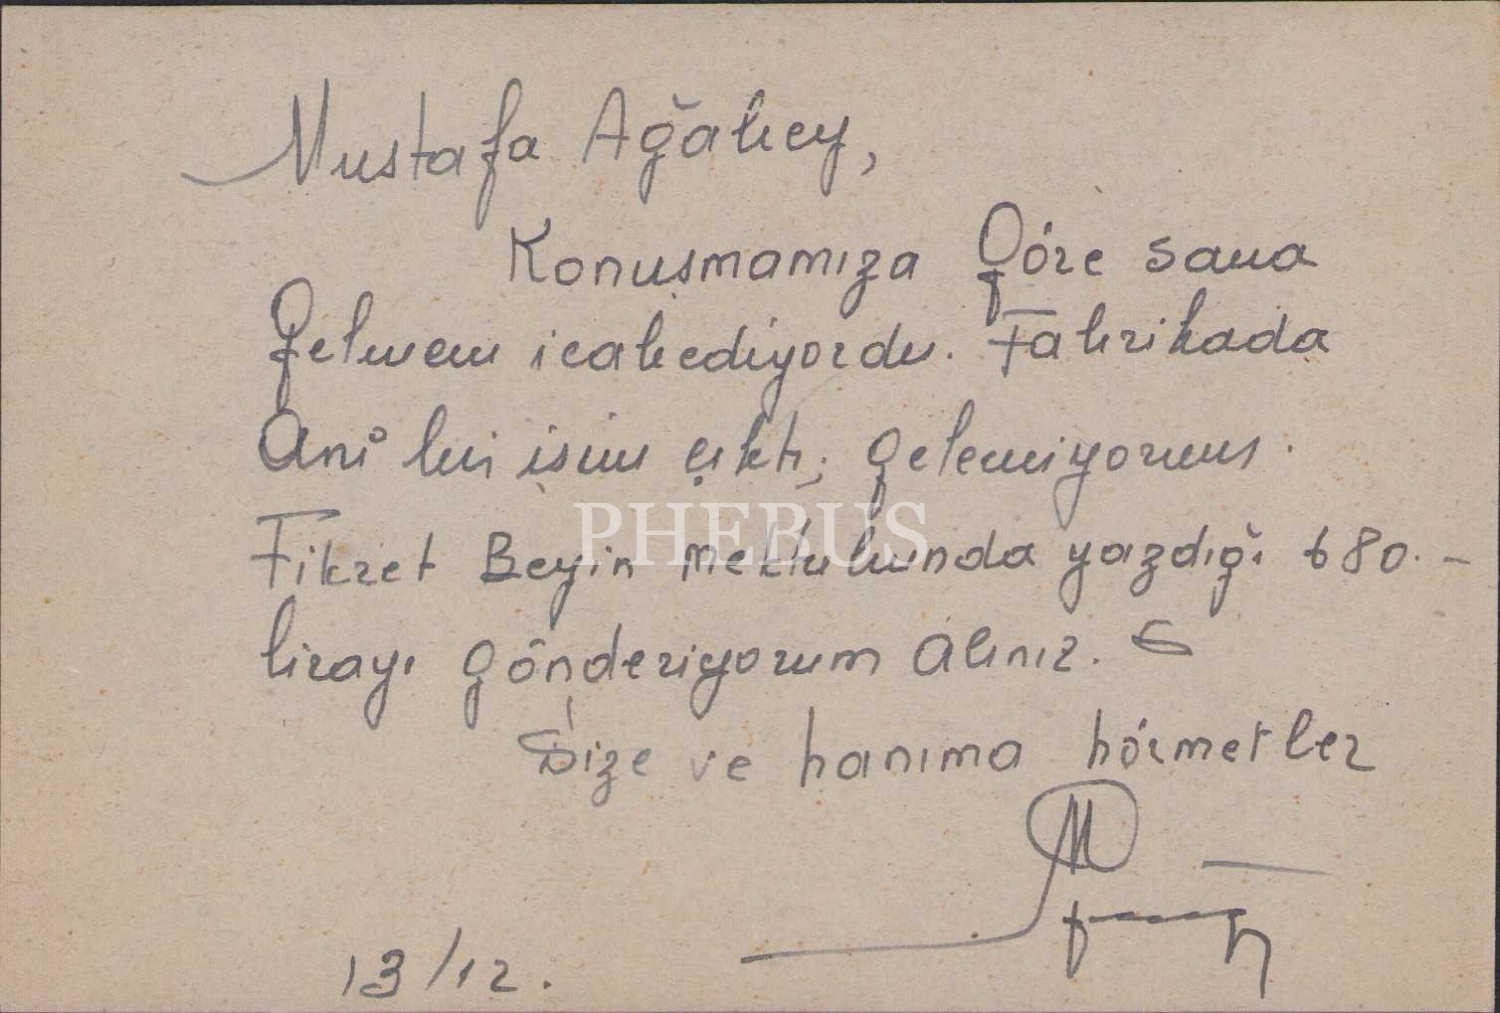 Mustafa Ağabey,
Konuşmamıza Göre sana
Gelmem icabediyordu. Fabrikada
Ani bir işim çıktı, gelemiyorum.
PHEBUS
Fikret Beyin mektubunda yazdığı 680.-
lirayı gönderiyorum alınız.
Size ve hanıma hörmetler
13/12.